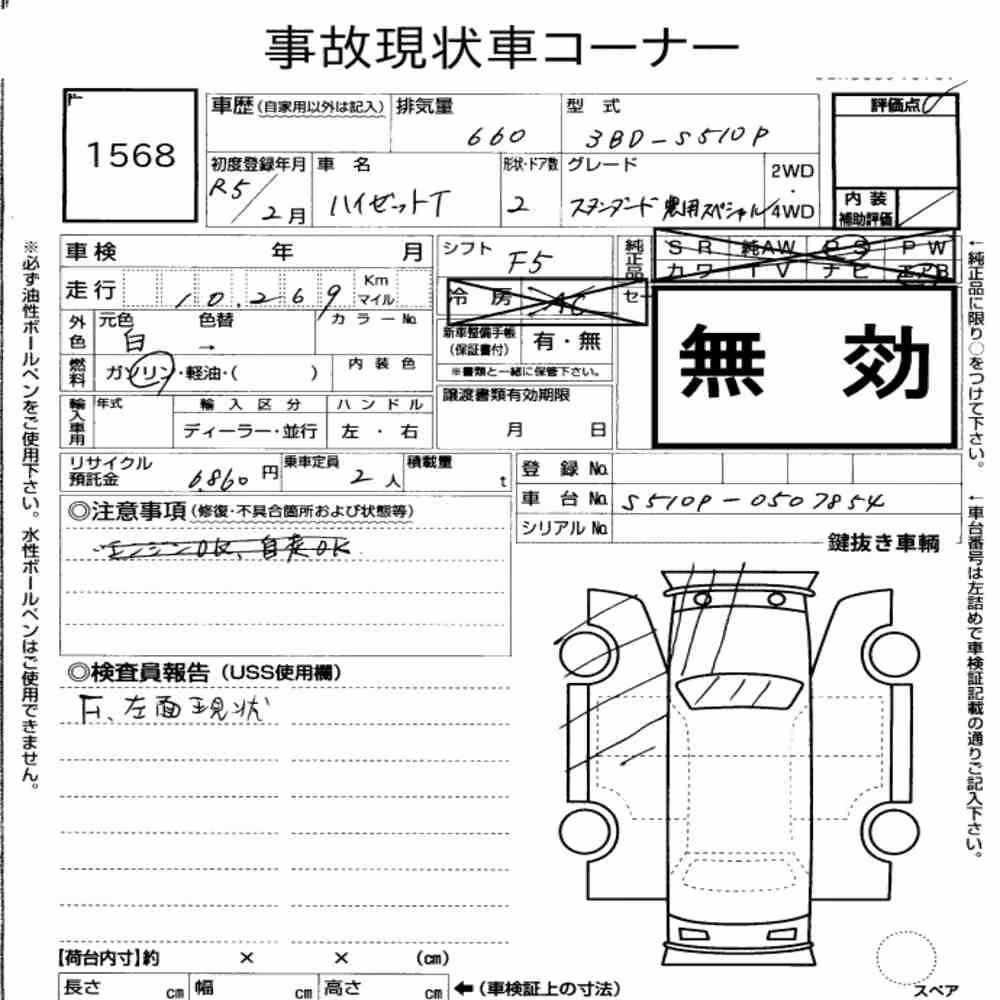 事故現状車コーナー
1568
車歴(自家用以外は記入)
排気量
660
型 式
3BD-S510P
評価点
初度登録年月
R5/2月
車 名
ハイゼットT
形状・ドア数
2
グレード
スタンダード 農用スペシャル
2WD
・
4WD
内 装
補助評価
車検 年 月
シフト
F5
純正品
セ
SR 純AW PS PW
カワ TV ナビ エアB
走行 10,269 Km マイル
冷 房 AC
外色
元色 色替
白 →
カラーNo.
新車整備手帳
(保証書付)
有・無
※書類と一緒に保管下さい。
無 効
燃料
ガソリン・軽油・( )
内 装 色
輸入車用
年式
輸 入 区 分
ハ ン ド ル
ディーラー・並行
左 ・ 右
譲渡書類有効期限
月 日
リサイクル
預託金
6,860 円
乗車定員
2 人
積載量
t
登 録 No.
車 台 No. S510P-0507854
シリアル No.
◎注意事項(修復・不具合箇所および状態等)
エンジンOK、自走OK
鍵抜き車輌
◎検査員報告(USS使用欄)
F、左面現状
【荷台内寸】約 × × (cm)
長さ cm 幅 cm 高さ cm ←(車検証上の寸法)
スペア
※必ず油性ボールペンをご使用下さい。水性ボールペンはご使用できません。
←純正品に限り○をつけて下さい。
←車台番号は左詰めで車検証記載の通りご記入下さい。